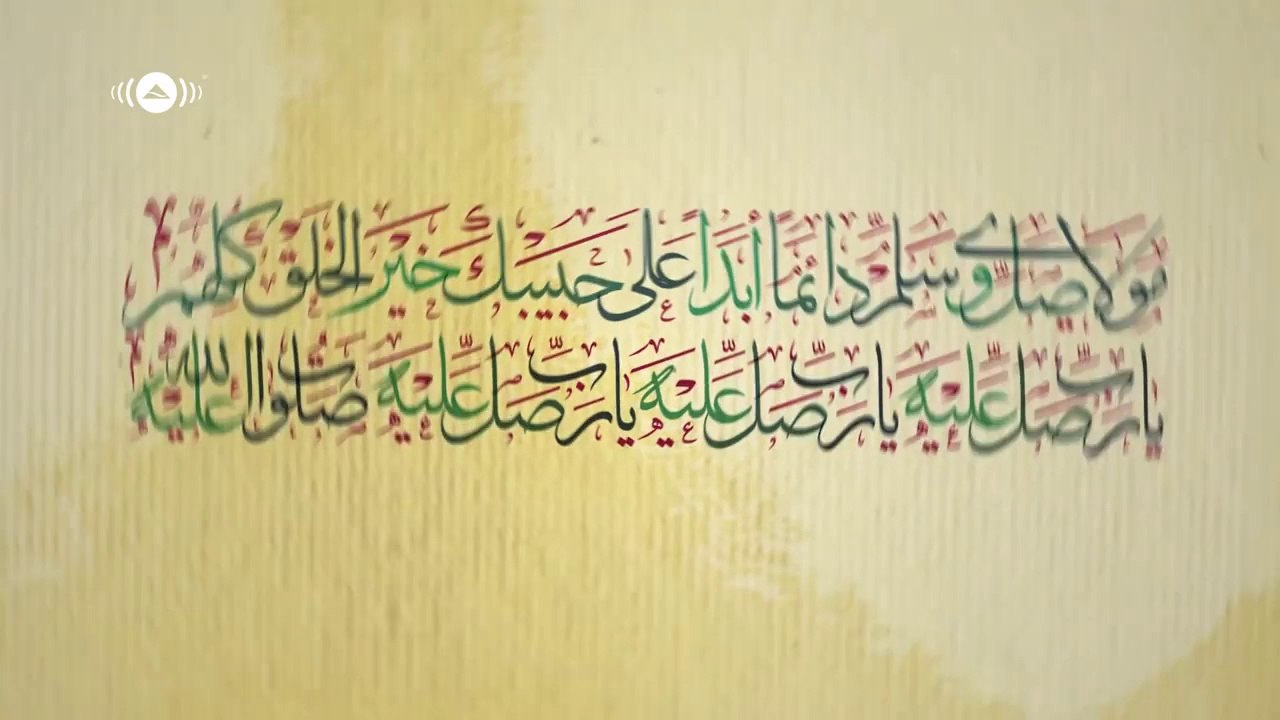 مَوْلَايَ صَلِّ وَسَلِّمْ دَائِمًا أَبَدًا عَلَى حَبِيبِكَ خَيْرِ الْخَلْقِ كُلِّهِمِ
يَا رَبِّ صَلِّ عَلَيْهِ يَا رَبِّ صَلِّ عَلَيْهِ يَا رَبِّ صَلِّ عَلَيْهِ صَلَوَاتُ اللهِ عَلَيْهِ